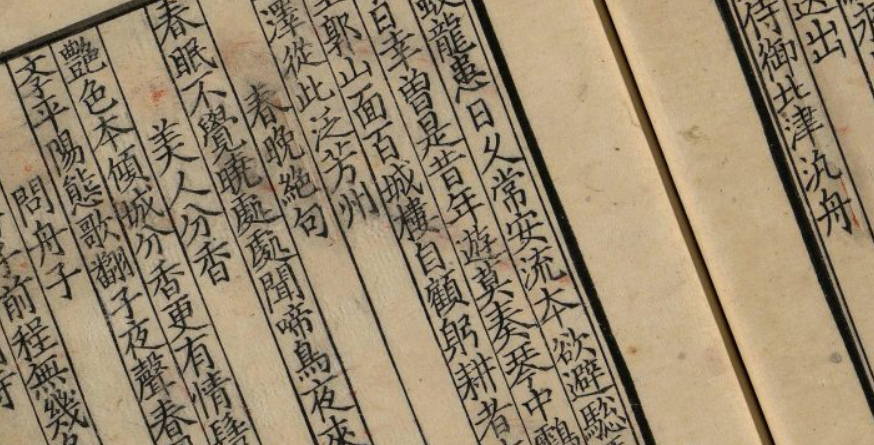 送出
侍御北津汎舟
龍患日久常安流本欲避驄
百幸曽是昔年遊莫奏琴中鶴
郭山面百城樓自顧躬耕者
澤從此泛芳州
春晚絶句
春眠不覺曉處處聞啼鳥夜來
美人分香
艷色本傾城分香更有情髻
平陽態歌翻子夜聲春
問舟子
前程無幾